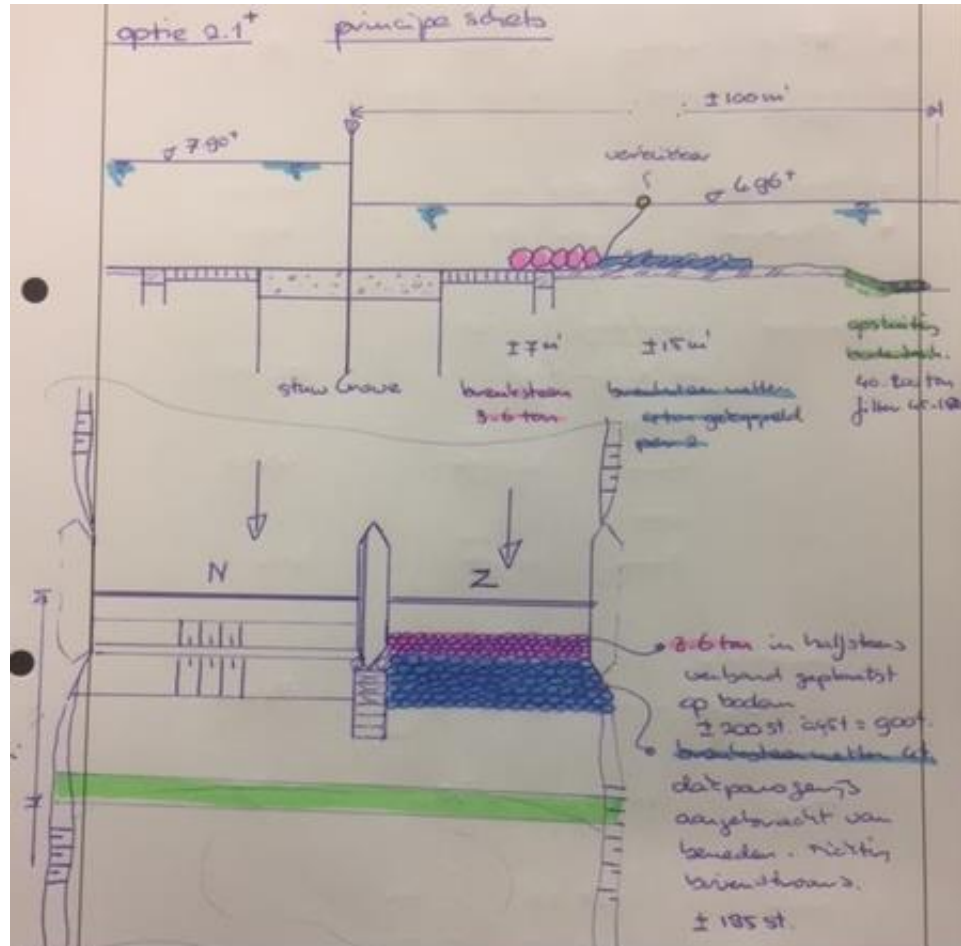 optie 2.1+ principe schets
±100 m'
7.90+
verklikker
4.96+
±7 m'
±15 m'
stuw Grave
breuksteen
3-6 ton
breuksteenmatten
gekoppeld
per 2
40-200 ton
filter 45-180
N
Z
3-6 ton in halfsteens
verband geplaatst
op bodem
± 200 st. = 900t.
breuksteenmatten
dakpansgewijs
aangebracht van
beneden. richting
bovenstrooms.
± 185 st.